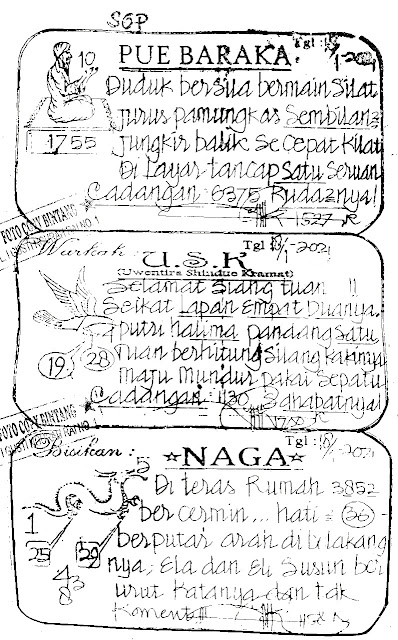 SGP
Tgl: 1-2021
PUE BARAKA
10
1755
Duduk bersila bermain Silat
jurus pamungkas Sembilan2
jungkir balik Secepat Kilat
Di Layar tancap satu Seruan
Cadangan : 6375 Kudaznya!
1527
FOTO COPY BINTANG
Warkah :
Tgl 1-2021
U.S.K
(Uwentira Shindue Kramat)
Selamat Siang tuan !!
Seikat Lapan Empat Duanya.
putri halima pandang satu
Tuan berhitung Silang kakinya
maju Mundur pakai Sepatu
19
28
Cadangan : 1130 Sahabatnya!
1750
FOTO COPY BINTANG
Bisikan :
Tgl : 1-2021
NAGA
Di teras Rumah 3852
bercermin... hati = 36 -
berputar arah di belakang
nya, Ela dan Eli Susun ber
urut Katanya dan tak
Koment
5
1
25
29
4 3
8
1158